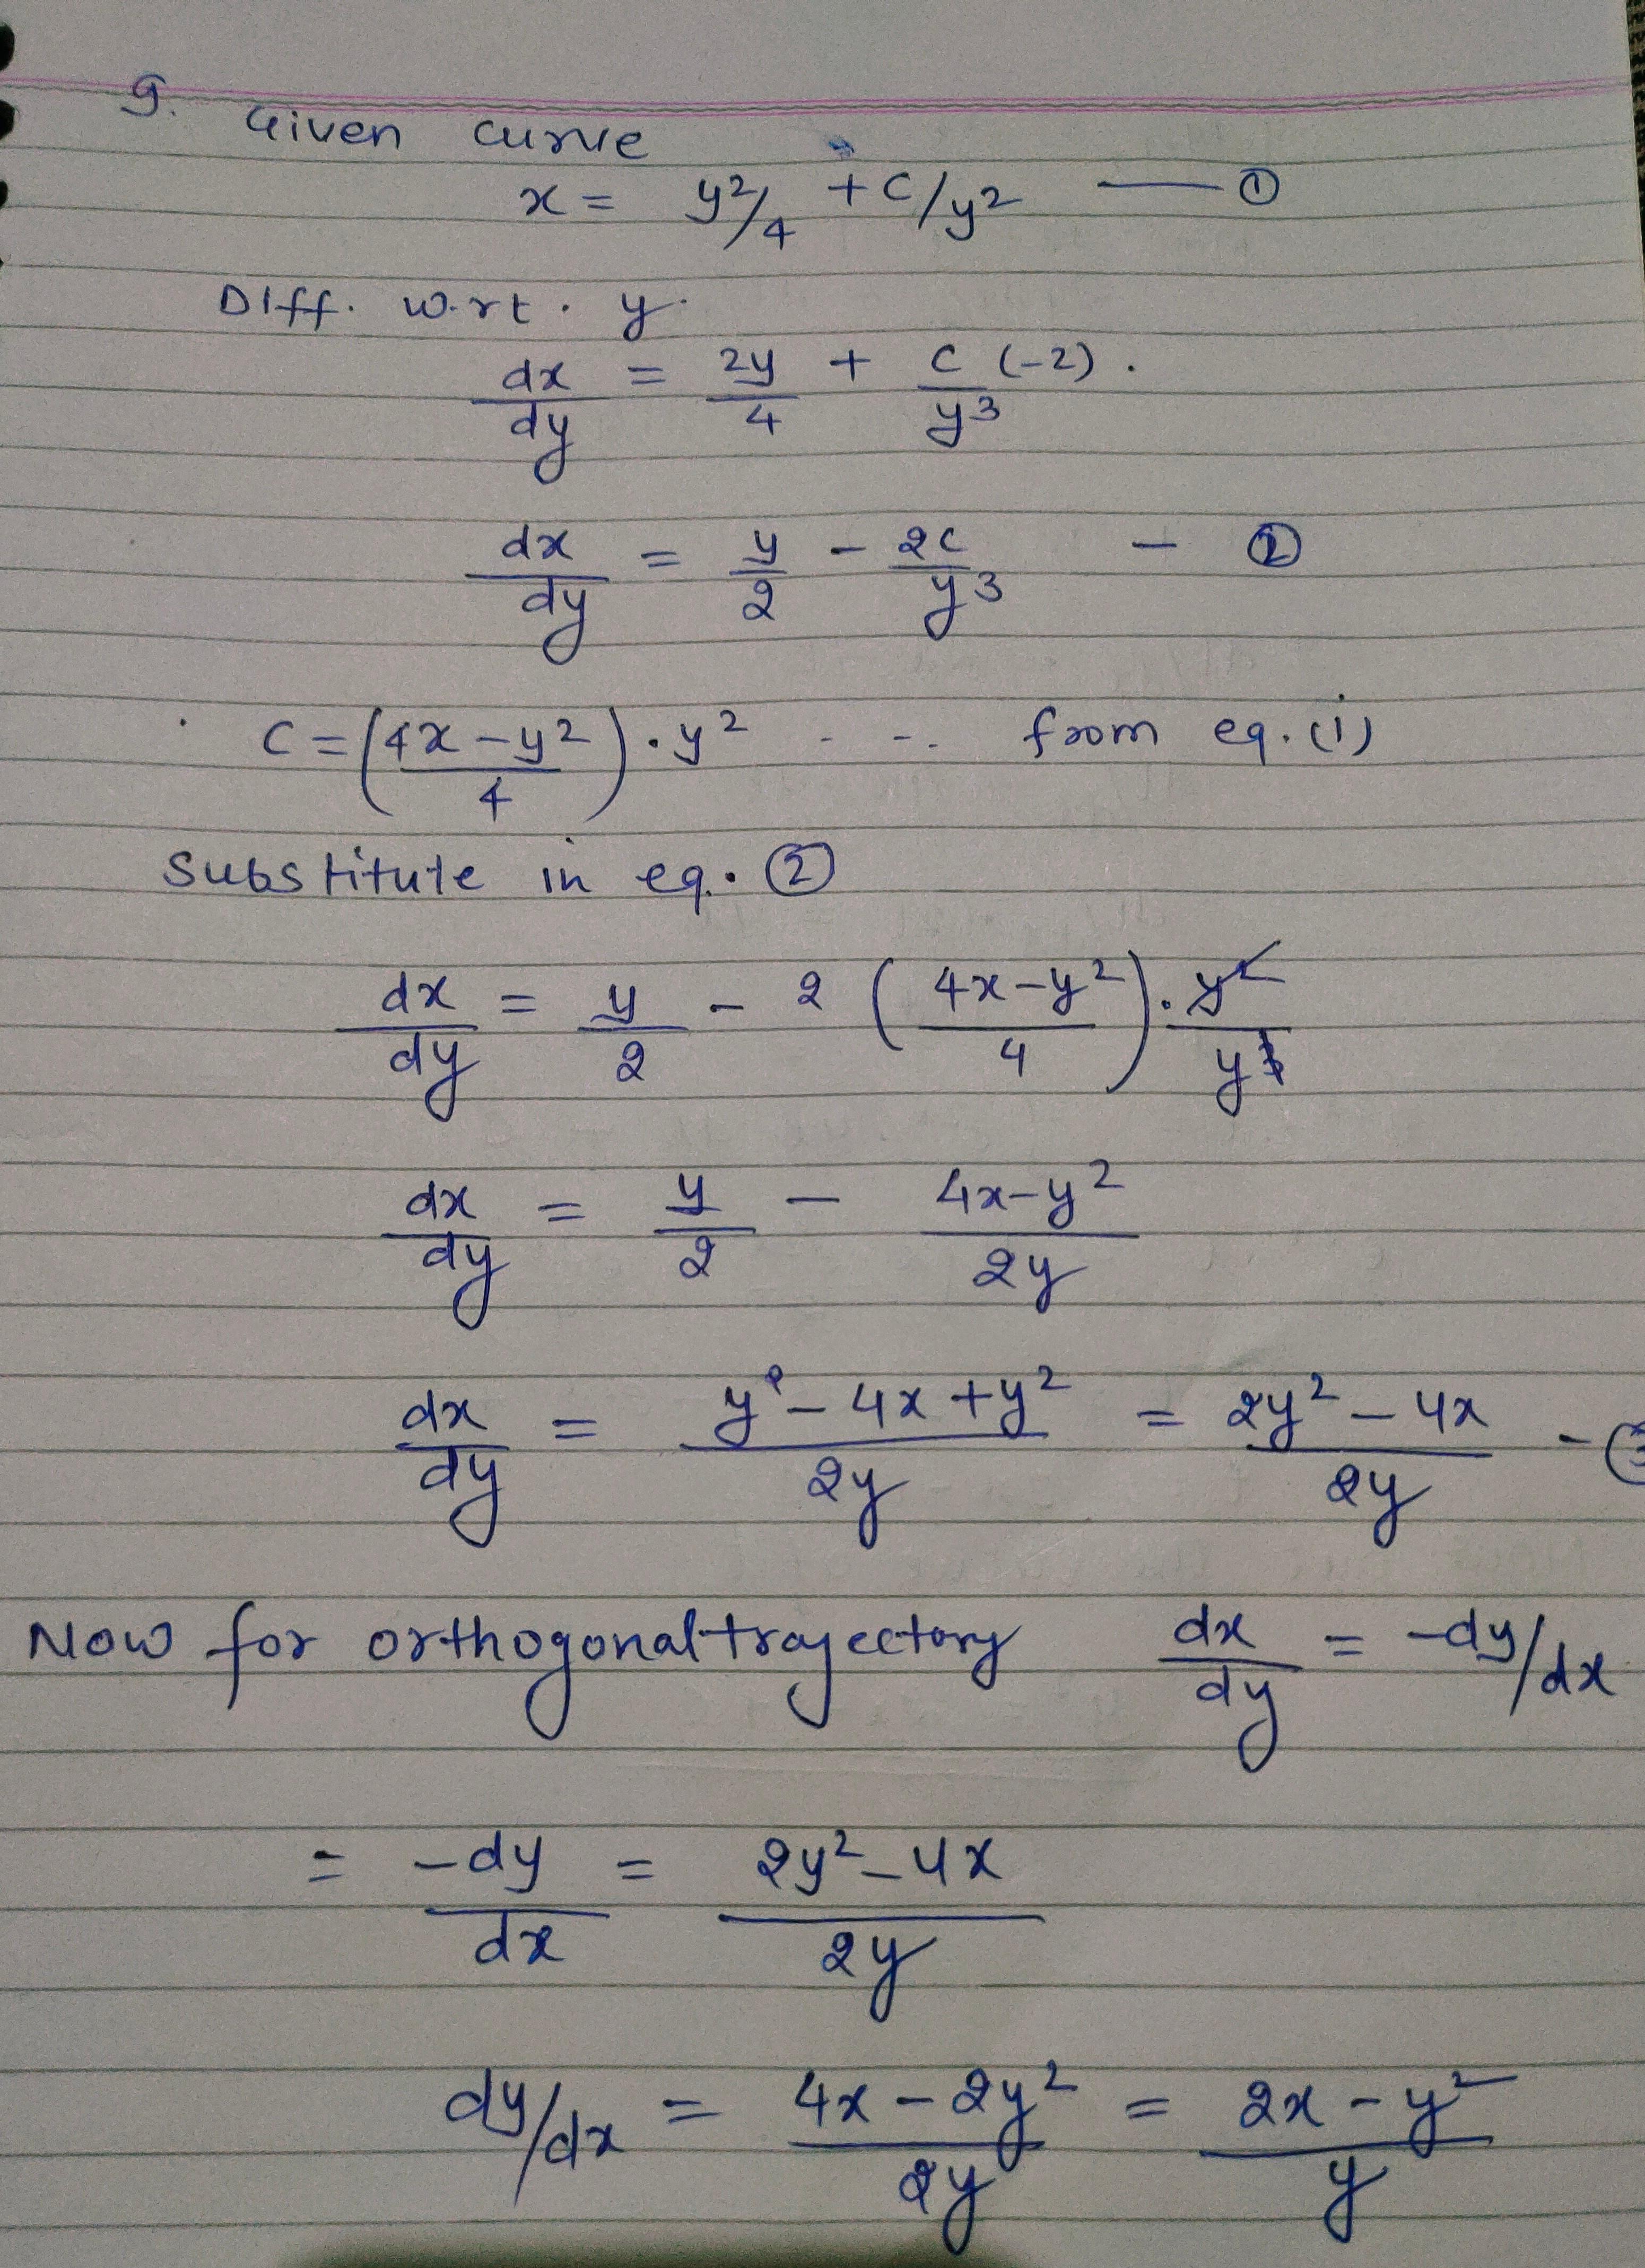 9. Given curve
x = y²/4 + C/y² — ①
Diff. w.r.t. y.
dx/dy = 2y/4 + C(-2)/y³ .
dx/dy = y/2 - 2C/y³ - ②
C = ((4x - y²)/4) . y² - - . from eq. (i)
Substitute in eq. ②
dx/dy = y/2 - 2 ((4x - y²)/4) . y²/y³
dx/dy = y/2 - (4x - y²)/2y
dx/dy = (y² - 4x + y²)/2y = (2y² - 4x)/2y - ③
Now for orthogonal trajectory dx/dy = -dy/dx
= -dy/dx = (2y² - 4x)/2y
dy/dx = (4x - 2y²)/2y = (2x - y²)/y